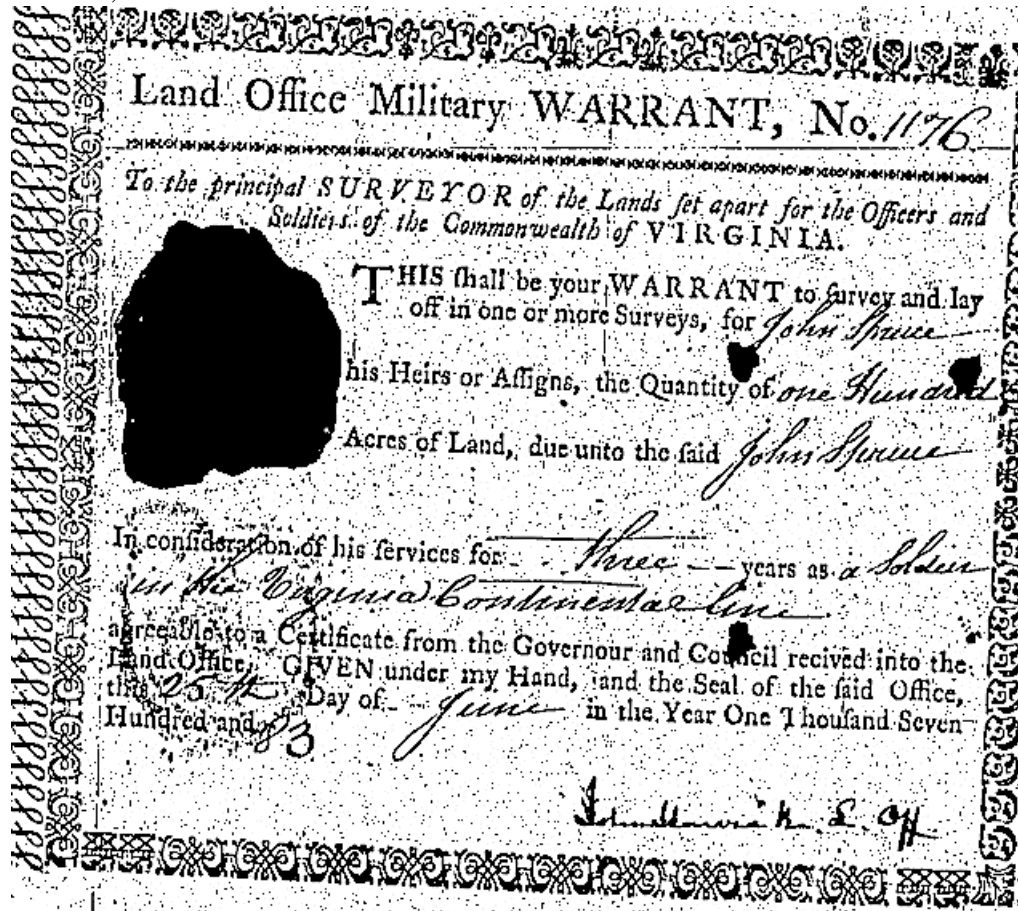 Land Office Military WARRANT, No. 1176
To the principal SURVEYOR of the Lands ſet apart for the Officers and
Soldiers of the Commonwealth of VIRGINIA.
THIS ſhall be your WARRANT to ſurvey and lay
off in one or more Surveys, for John Spruce
his Heirs or Aſſigns, the Quantity of one Hundred
Acres of Land, due unto the ſaid John Spruce
In conſideration of his ſervices for three years as a Soldier
in the Virginia Continental line
agreeable to a Certificate from the Governour and Council recived into the
Land Office. GIVEN under my Hand, and the Seal of the ſaid Office,
this 25th Day of June in the Year One Thouſand Seven
Hundred and 83
John Harvie R. L. Off